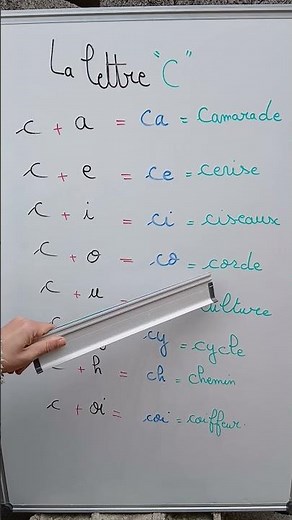 La lettre "C"
c + a = ca = Camarade
c + e = ce = cerise
c + i = ci = ciseaux
c + o = co = corde
c + u = ulture
cy = cycle
+ h = ch = chemin
c + oi = coi = coiffeur.